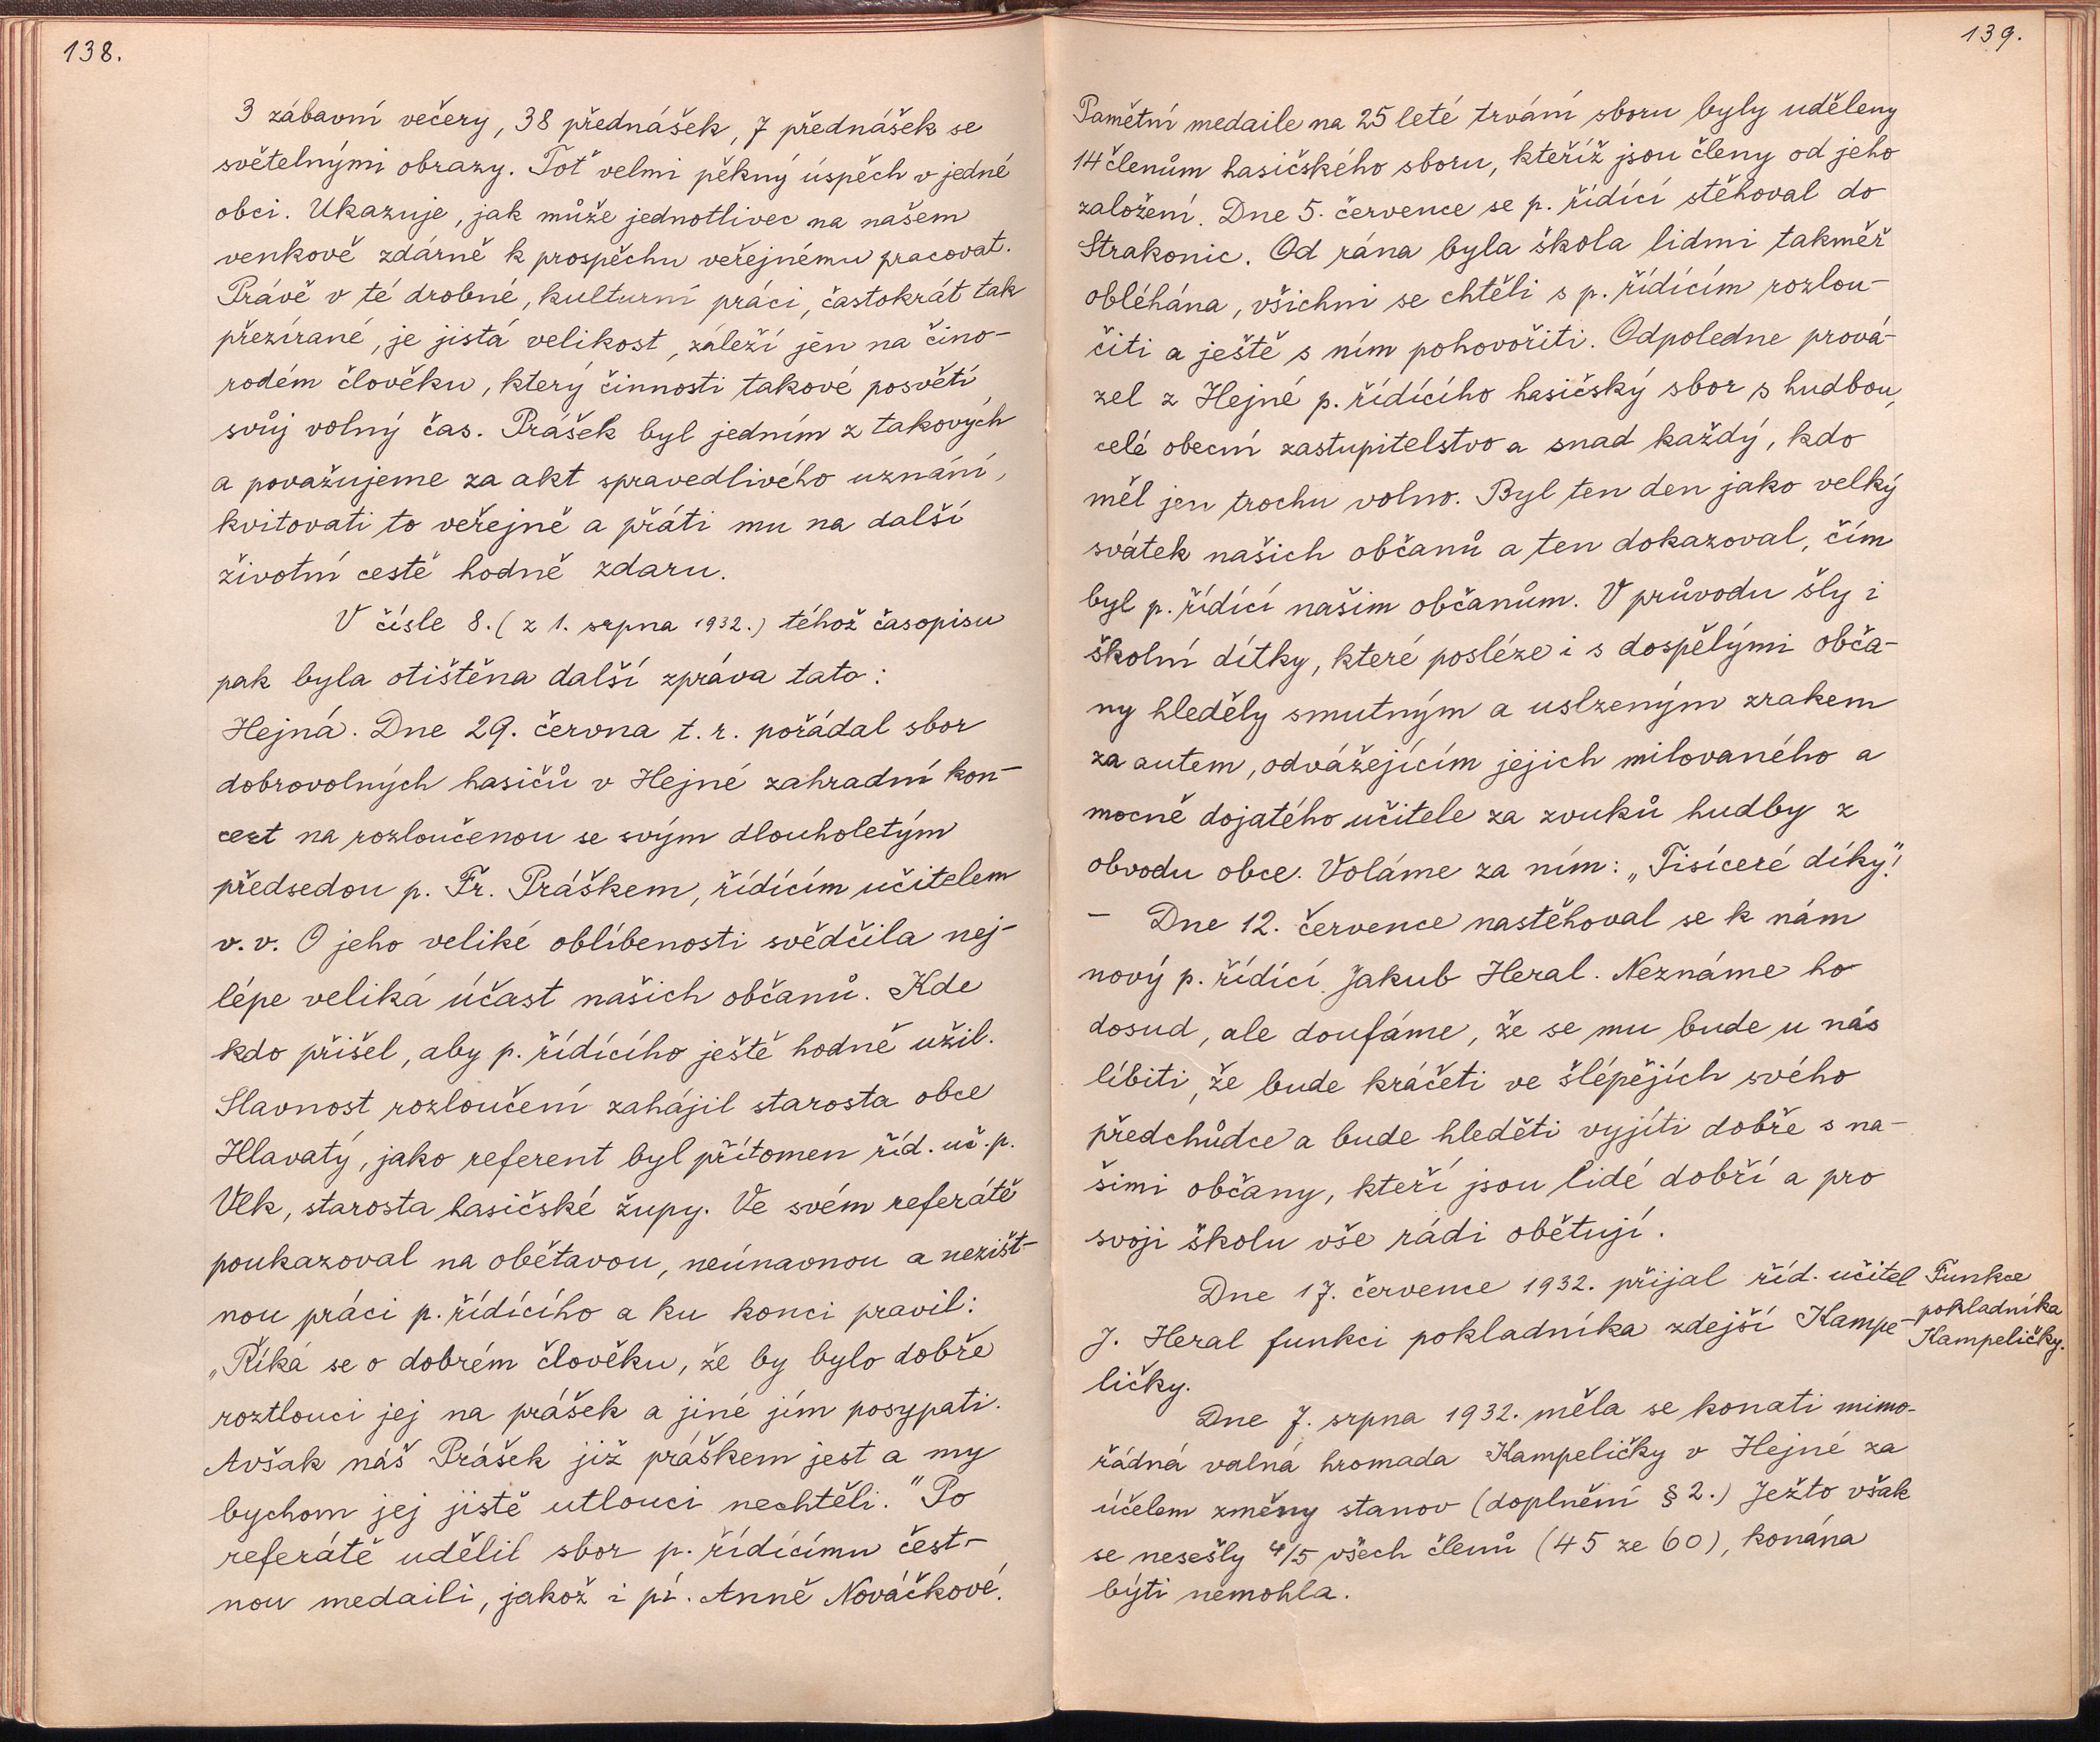 138.
3 zábavní večery, 38 přednášek, 7 přednášek se
světelnými obrazy. Toť velmi pěkný úspěch v jedné
obci. Ukazuje, jak může jednotlivec na našem
venkově zdárně k prospěchu veřejnému pracovat.
Právě v té drobné, kulturní práci, častokrát tak
přezírané, je jistá velikost, záleží jen na čino-
rodém člověku, který činnosti takové posvětí
svůj volný čas. Prášek byl jedním z takových
a považujeme za akt spravedlivého uznání,
kvitovati to veřejně a přáti mu na další
životní cestě hodně zdaru.
V čísle 8. (z 1. srpna 1932.) téhož časopisu
pak byla otištěna další zpráva tato:
Hejná. Dne 29. června t. r. pořádal sbor
dobrovolných hasičů v Hejné zahradní kon-
cert na rozloučenou se svým dlouholetým
předsedou p. Fr. Práškem, řídícím učitelem
v. v. O jeho veliké oblíbenosti svědčila nej-
lépe veliká účast našich občanů. Kde
kdo přišel, aby p. řídícího ještě hodně užil.
Slavnost rozloučení zahájil starosta obce
Hlavatý, jako referent byl přítomen říd. uč. p.
Vlk, starosta hasičské župy. Ve svém referátě
poukazoval na obětavou, neúnavnou a nezišt-
nou práci p. řídícího a ku konci pravil:
„Říká se o dobrém člověku, že by bylo dobře
roztlouci jej na prášek a jiné jím posypati.
Avšak náš Prášek již práškem jest a my
bychom jej jistě utlouci nechtěli." Po
referátě udělil sbor p. řídícímu čest-
nou medaili, jakož i pí. Anně Nováčkové.
139.
Pamětní medaile na 25 leté trvání sboru byly uděleny
14 členům hasičského sboru, kteříž jsou členy od jeho
založení. Dne 5. července se p. řídící stěhoval do
Strakonic. Od rána byla škola lidmi takměř
obléhána, všichni se chtěli s p. řídícím rozlou-
čiti a ještě s ním pohovořiti. Odpoledne prová-
zel z Hejné p. řídícího hasičský sbor s hudbou,
celé obecní zastupitelstvo a snad každý, kdo
měl jen trochu volno. Byl ten den jako velký
svátek našich občanů a ten dokazoval, čím
byl p. řídící našim občanům. V průvodu šly i
školní dítky, které posléze i s dospělými obča-
ny hleděly smutným a uslzeným zrakem
za autem, odvážejícím jejich milovaného a
mocně dojatého učitele za zvuků hudby z
obvodu obce. Voláme za ním: „Tisíceré díky"!
- Dne 12. července nastěhoval se k nám
nový p. řídící Jakub Heral. Neznáme ho
dosud, ale doufáme, že se mu bude u nás
líbiti, že bude kráčeti ve šlépějích svého
předchůdce a bude hleděti vyjíti dobře s na-
šimi občany, kteří jsou lidé dobří a pro
svoji školu vše rádi obětují.
Dne 17. července 1932. přijal říd. učitel
J. Heral funkci pokladníka zdejší Kampe-
ličky.
Funkce
pokladníka
Kampeličky.
Dne 7. srpna 1932. měla se konati mimo-
řádná valná hromada Kampeličky v Hejné za
účelem změny stanov (doplnění § 2.) Ježto však
se nesešly 4/5 všech členů (45 ze 60), konána
býti nemohla.